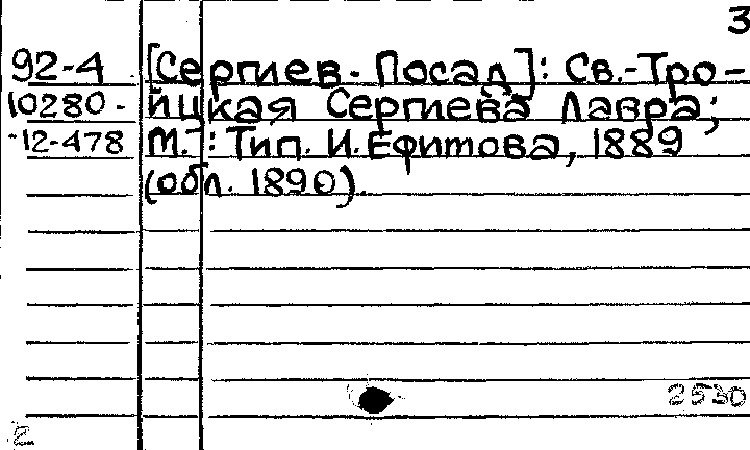 3
92-4 [Сергиев-Посад]: Св.-Тро-
10280- ицкая Сергиева Лавра;
-12-478 М.: Тип. И. Ефимова, 1889
(обл. 1890).
2530
2